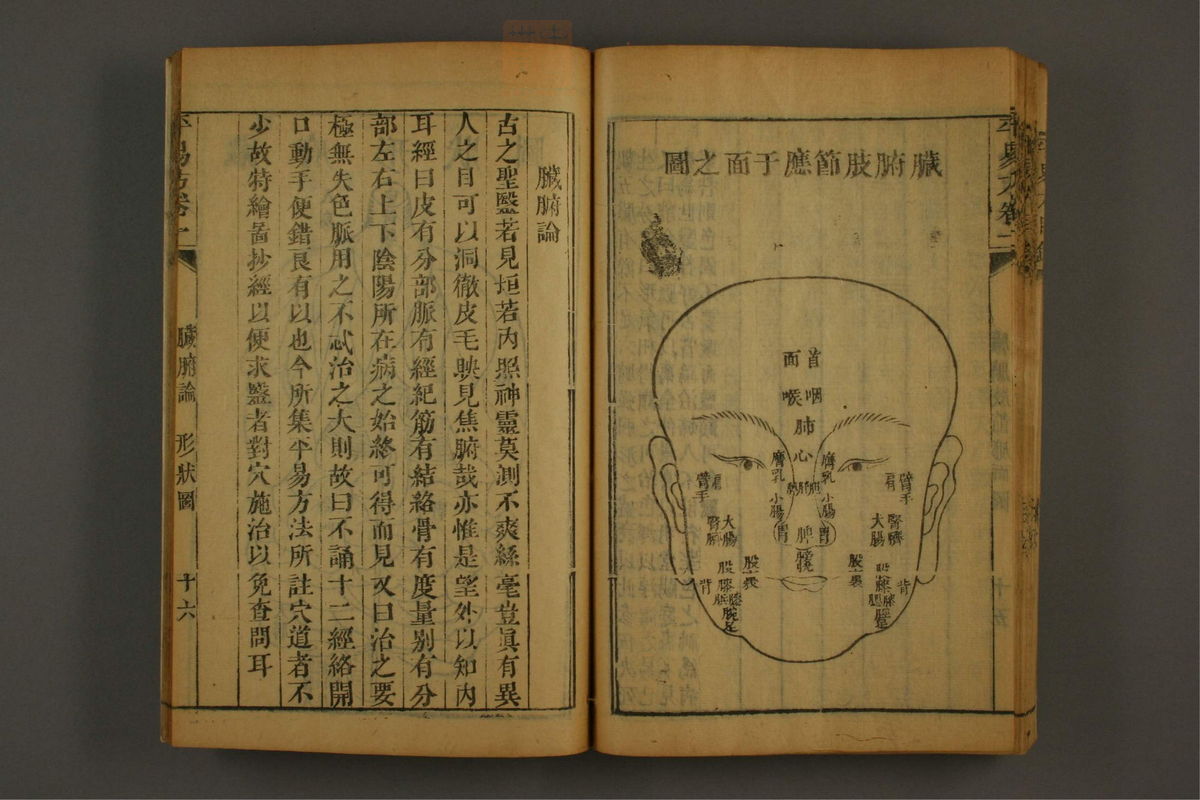 臟腑肢節應于面之圖
首面
咽喉
肺
心
膺乳
膺乳
小腸
小腸
胃
胃
脾
臂手
肩
臂手
肩
大腸
大腸
腎臍
股裏
股裏
背
背
臟腑論
古之聖醫若見垣若內照神靈莫測不爽絲毫豈眞有異
人之目可以洞徹皮毛映見焦腑哉亦惟是望外以知內
耳經曰皮有分部脈有經紀筋有結絡骨有度量別有分
部左右上下陰陽所在病之始終可得而見又曰治之要
極無失色脈用之不忒治之大則故曰不誦十二經絡開
口動手便錯良有以也今所集平易方法所註穴道者不
少故特繪啚抄經以便求醫者對穴施治以免查問耳
平易方卷
臟腑論 形狀圖 十六